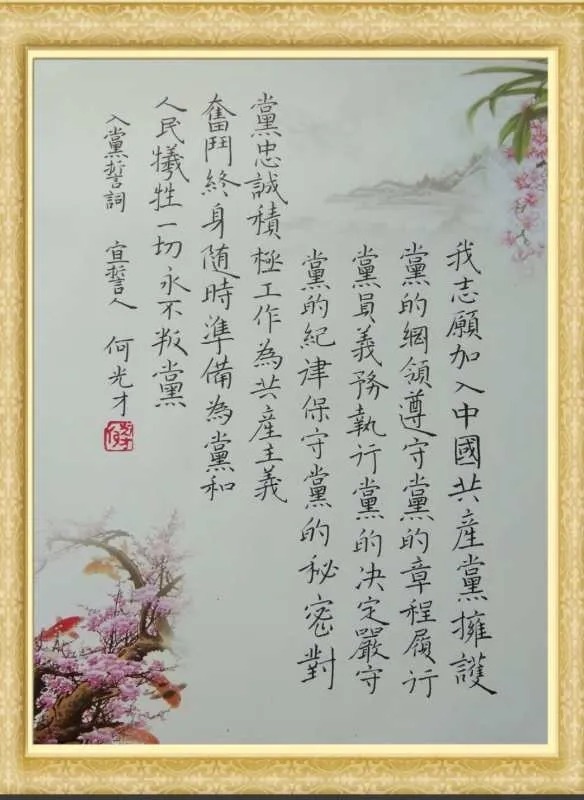 我志願加入中國共産黨擁護
黨的綱領遵守黨的章程履行
黨員義務執行黨的决定嚴守
黨的紀律保守黨的秘密對
黨忠誠積極工作為共産主義
奮鬥終身隨時準備為黨和
人民犧牲一切永不叛黨
入黨誓詞 宣誓人 何光才